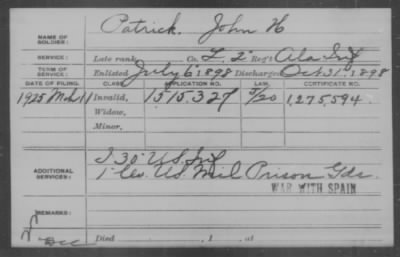 NAME OF SOLDIER: Patrick. John H
SERVICE: Late rank, Co. L. 2" Reg't Ala Inf
TERM OF SERVICE: Enlisted July 6 1898 Discharged Oct 31. 1898
DATE OF FILING. CLASS. APPLICATION NO. LAW. CERTIFICATE NO.
1925 Mch 11 Invalid, 1515.327 5/20 1,275,594.
Widow,
Minor,
ADDITIONAL SERVICES: I 30 U.S. Inf
1" Co. U.S. Mil Prison Gds.
WAR WITH SPAIN
REMARKS:
Died , 1 , at